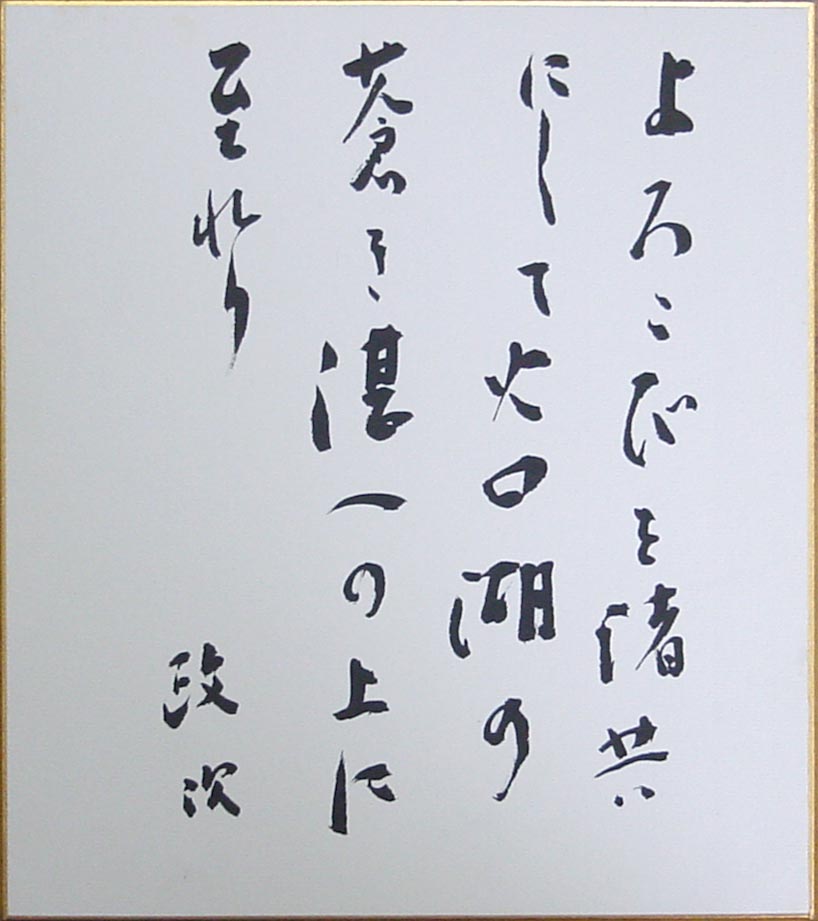 よろこびを諸共
にして火口湖の
蒼き湛への上に
至れり
政次